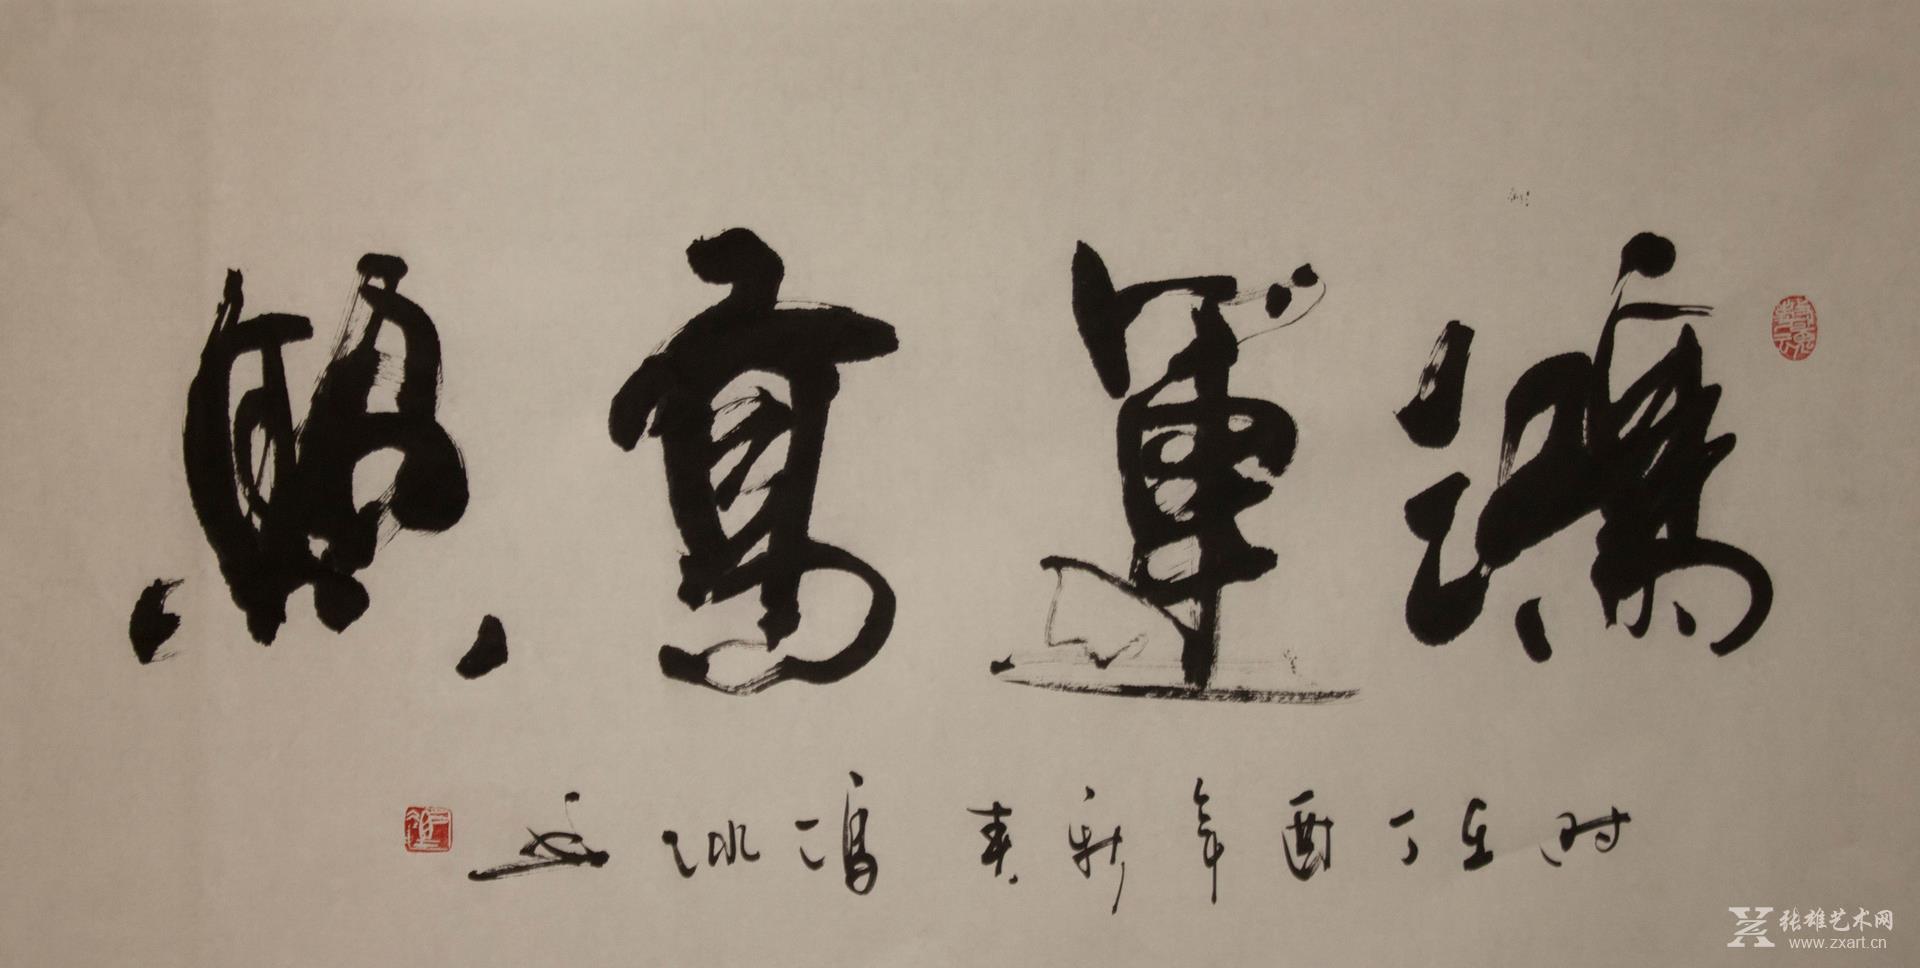 鴻運高照
时在丁酉年新春冯
张雄艺术网
www.zxart.cn